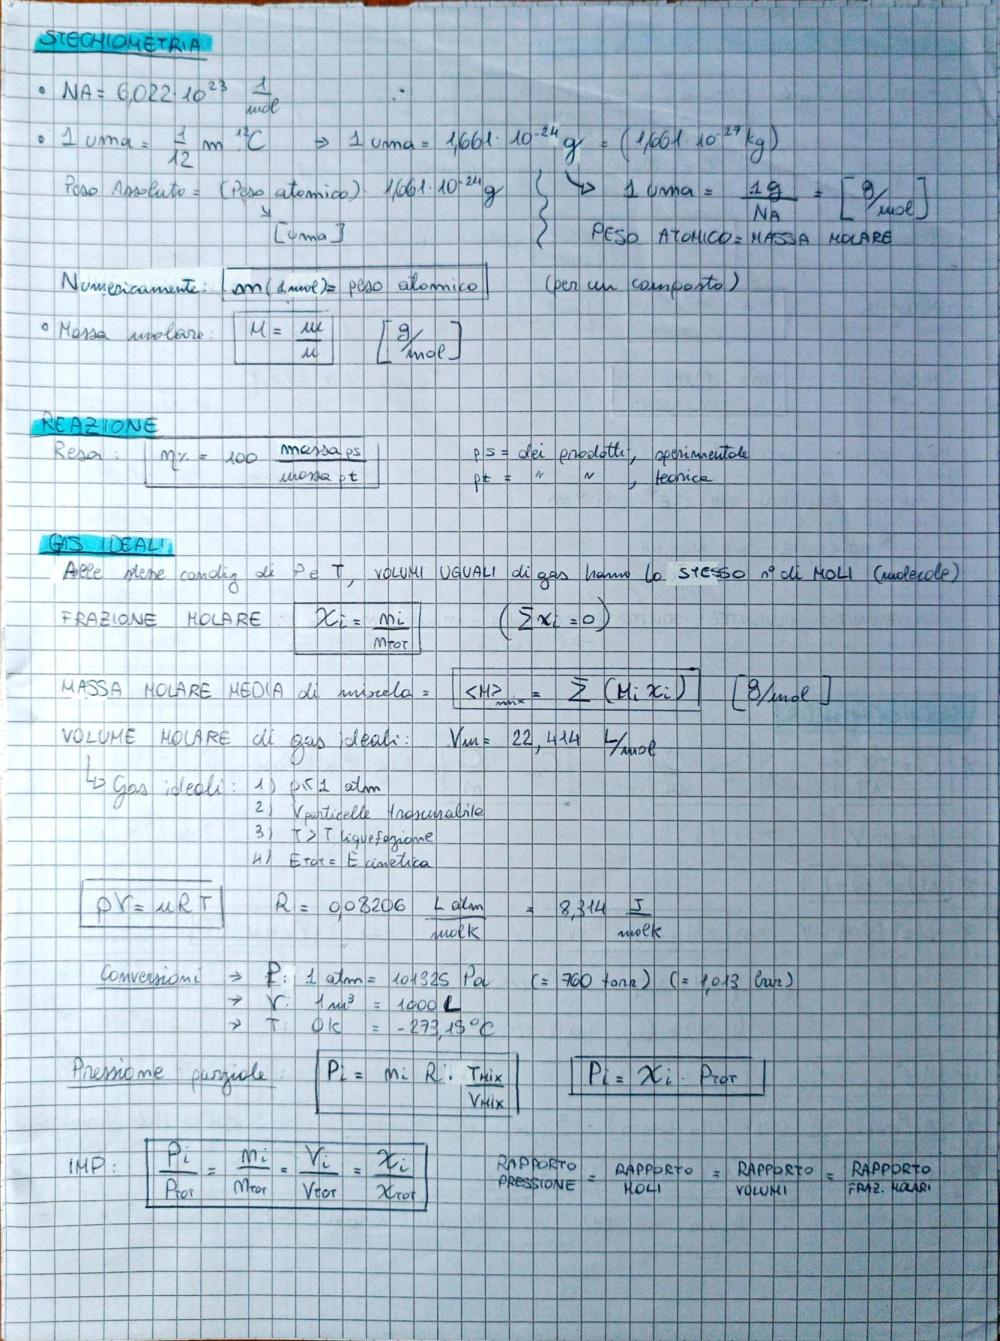 STECHIOMETRIA
• NA = 6,022·10²³ 1/mol
• 1 uma = 1/12 m ¹²C ⇒ 1 uma = 1,661·10⁻²⁴ g = (1,661·10⁻²⁷ kg)
Peso Assoluto = (Peso atomico)·1,661·10⁻²⁴ g ↳ 1 uma = 1g/NA = [g/mol]
↘ [uma] PESO ATOMICO = MASSA MOLARE
Numericamente: m(1mol) = peso atomico (per un composto)
• Massa molare: M = m/n [g/mol]
REAZIONE
Resa: η% = 100 massa ps/massa pt ps = dei prodotti, sperimentale
pt = " " , teorica
GAS IDEALI
Alle stesse condiz di P e T, VOLUMI UGUALI di gas hanno lo STESSO n° di MOLI (molecole)
FRAZIONE MOLARE: Xi = ni/nTOT (Σxi = 0)
MASSA MOLARE MEDIA di miscela = <M>mix = Σ (Mi xi) [g/mol]
VOLUME MOLARE di gas ideali: Vm = 22,414 L/mol
↳ Gas ideali: 1) p≤1 atm
2) Vparticelle trascurabile
3) T>T liquefazione
4) ETOT = E cinetica
pV = nRT R = 0,08206 L atm/molK = 8,314 J/molK
Conversioni → P: 1 atm = 101325 Pa (= 760 torr) (= 1,013 bar)
→ V: 1m³ = 1000 L
→ T: 0K = -273,15°C
Pressione parziale: Pi = ni R · TMIX/VMIX Pi = Xi · PTOT
IMP: Pi/PTOT = ni/nTOT = Vi/VTOT = Xi/XTOT RAPPORTO PRESSIONE = RAPPORTO MOLI = RAPPORTO VOLUMI = RAPPORTO FRAZ. MOLARI